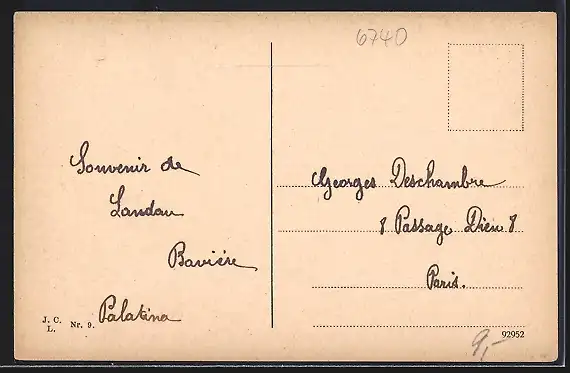 6740
Souvenir de
Landau
Bavière
Palatina
J. C.
L. Nr. 9.
Georges Deschambre
8 Passage Dieu 8
Paris.
9,-
92952